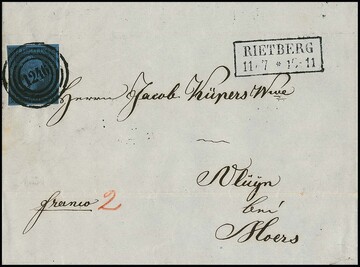 1246
RIETBERG
11 7 * 10-11
Herrn Jacob Küpers Wwe
Vluyn
bei
Moers
franco 2